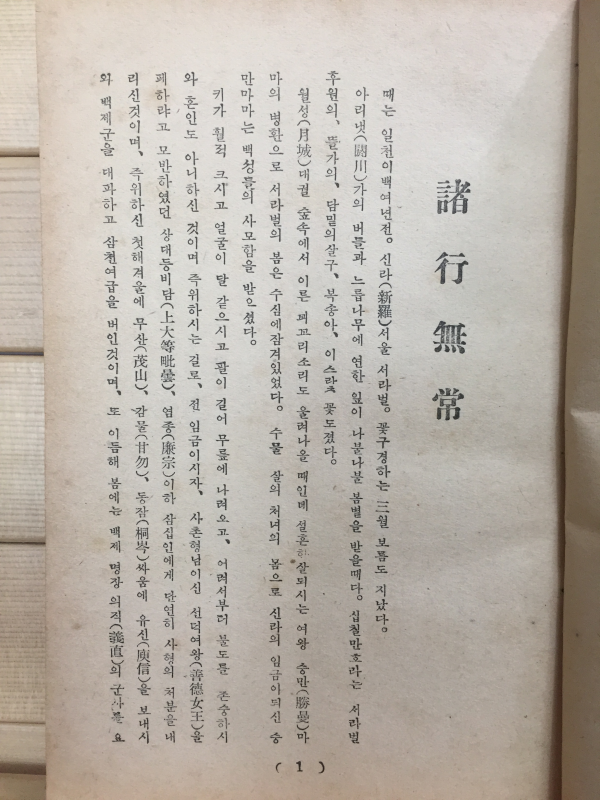 諸行無常
때는 일천이백여년전。신라(新羅)서울 서라벌。꽃구경하는 三월 보름도 지났다。
아리냇(閼川)가의 버들과 느릅나무에 연한 잎이 나불나불 봄볕을 받을때다。십칠만호라는 서라벌
후원의、뜰가의、담밑의살구、복송아、이스랏 꽃도졌다。
월성(月城)대궐 숲속에서 이른 꾀꼬리소리도 울려나올 때인데 설흔 살되시는 여왕 승만(勝曼)마
마의 병환으로 서라벌의 봄은 수심에잠겨있었다。수물 살의 처녀의 몸으로 신라의 임금이되신 승
만마마는 백성들의 사모함을 받으셨다。
키가 훨적 크시고 얼굴이 달 같으시고 팔이 길어 무릎에 나려오고、어려서부터 불도를 존숭하시
와 혼인도 아니하신 것이며 즉위하시는 길로、전 임금이시자、사촌형님이신 선덕여왕(善德女王)을
폐하랴고 모반하였던 상대등비담(上大等毗曇)、염종(廉宗)이하 삼십인에게 단연히 사형의 처분을 내
리신것이며、즉위하신 첫해겨울에 무산(茂山)、감물(甘勿)、동잠(桐岑)싸움에 유신(庾信)을 보내시
와 백제군을 대파하고 삼천여급을 버인것이며、또 이듬해 봄에는 백제 명장 의직(義直)의 군사를 요
( 1 )